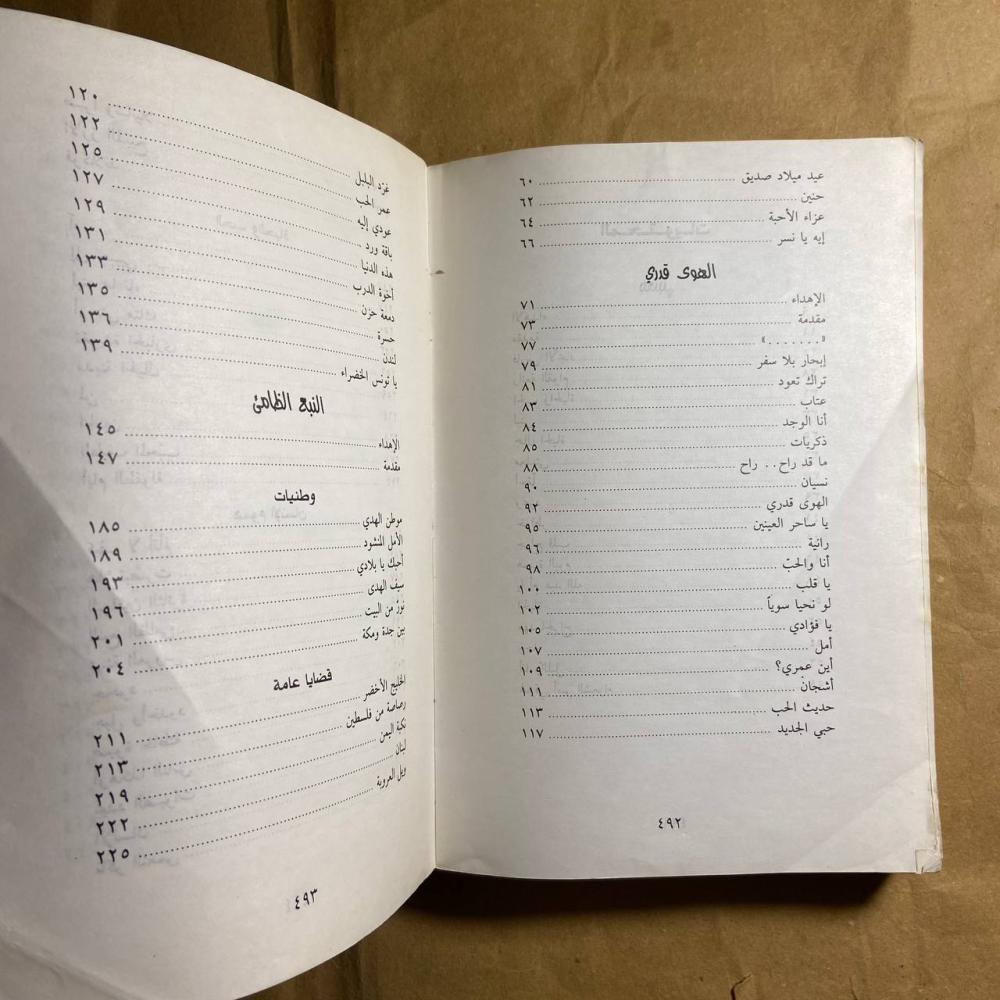 عيد ميلاد صديق ........ ٦٠
حنين ........ ٦٢
عزاء الأحبة ........ ٦٤
إيه يا نسر ........ ٦٦
الهوى قدري
الإهداء ........ ٧١
مقدمة ........ ٧٣
«.......» ........ ٧٧
إبحار بلا سفر ........ ٧٩
تراك تعود ........ ٨١
عتاب ........ ٨٣
أنا الوجد ........ ٨٤
ذكريات ........ ٨٥
ما قد راح.. راح ........ ٨٨
نسيان ........ ٩٠
الهوى قدري ........ ٩٢
يا ساحر العينين ........ ٩٥
رانية ........ ٩٦
أنا والحبّ ........ ٩٨
يا قلب ........ ١٠٠
لو نحيا سوياً ........ ١٠٢
يا فؤادي ........ ١٠٥
أمل ........ ١٠٧
أين عمري؟ ........ ١٠٩
أشجانٌ ........ ١١١
حديث الحب ........ ١١٣
حبي الجديد ........ ١١٧
٤٩٢
غرّد البلبل ........ ١٢٠
عمر الحب ........ ١٢٢
عودي إليه ........ ١٢٥
باقة ورد ........ ١٢٧
هذه الدنيا ........ ١٢٩
أخوة الدرب ........ ١٣١
دمعة حزن ........ ١٣٣
حسرة ........ ١٣٥
لندن ........ ١٣٦
يا تونس الخضراء ........ ١٣٩
النبع الظامئ
الإهداء ........ ١٤٥
مقدمة ........ ١٤٧
وطنيات
موطن الهدي ........ ١٨٥
الأمل المنشود ........ ١٨٩
أحبك يا بلادي ........ ١٩٣
سيف الهدى ........ ١٩٦
نورٌ من البيت ........ ٢٠١
بين جدة ومكة ........ ٢٠٤
قضايا عامة
الخليج الأخضر ........ ٢١١
رصاصة من فلسطين ........ ٢١٣
نكبة اليمن ........ ٢١٩
لبنان ........ ٢٢٢
ويل العروبة ........ ٢٢٥
٤٩٣